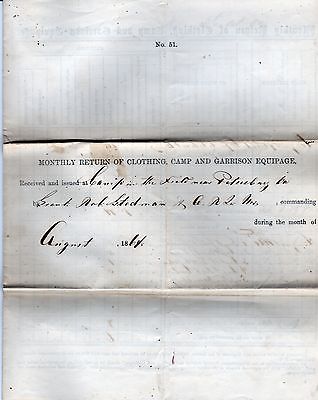 No. 51.
MONTHLY RETURN OF CLOTHING, CAMP AND GARRISON EQUIPAGE,
Received and issued at Camp in the field near Petersburg Va
Lieut. Rob Stedman , commanding
during the month of
August 1864.